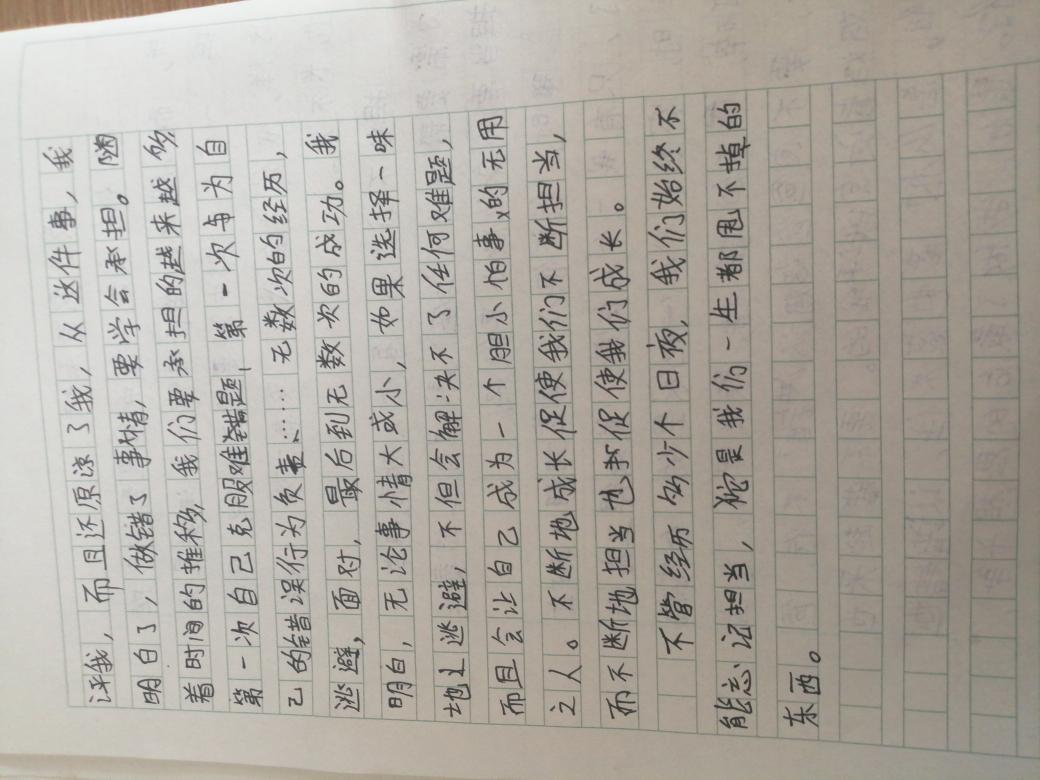 评我，而且还原谅了我，从这件事，我
明白了，做错了事情，要学会承担。随
着时间的推移，我们要承担的越来越多
第一次自己克服难错题，第一次与为自
己的错误行为负责、……无数次的经历，
逃避，面对，最后到无数次的成功。我
明白，无论事情大或小，如果选择一味
地逃避，不但会解决不了任何难题，
而且会让自己成为一个胆小怕事的无用
之人。不断地成长促使我们不断担当，
而不断地担当也促使我们成长。
不管经历多少个日夜，我们始终不
能忘记担当，它是我们一生都甩不掉的
东西。